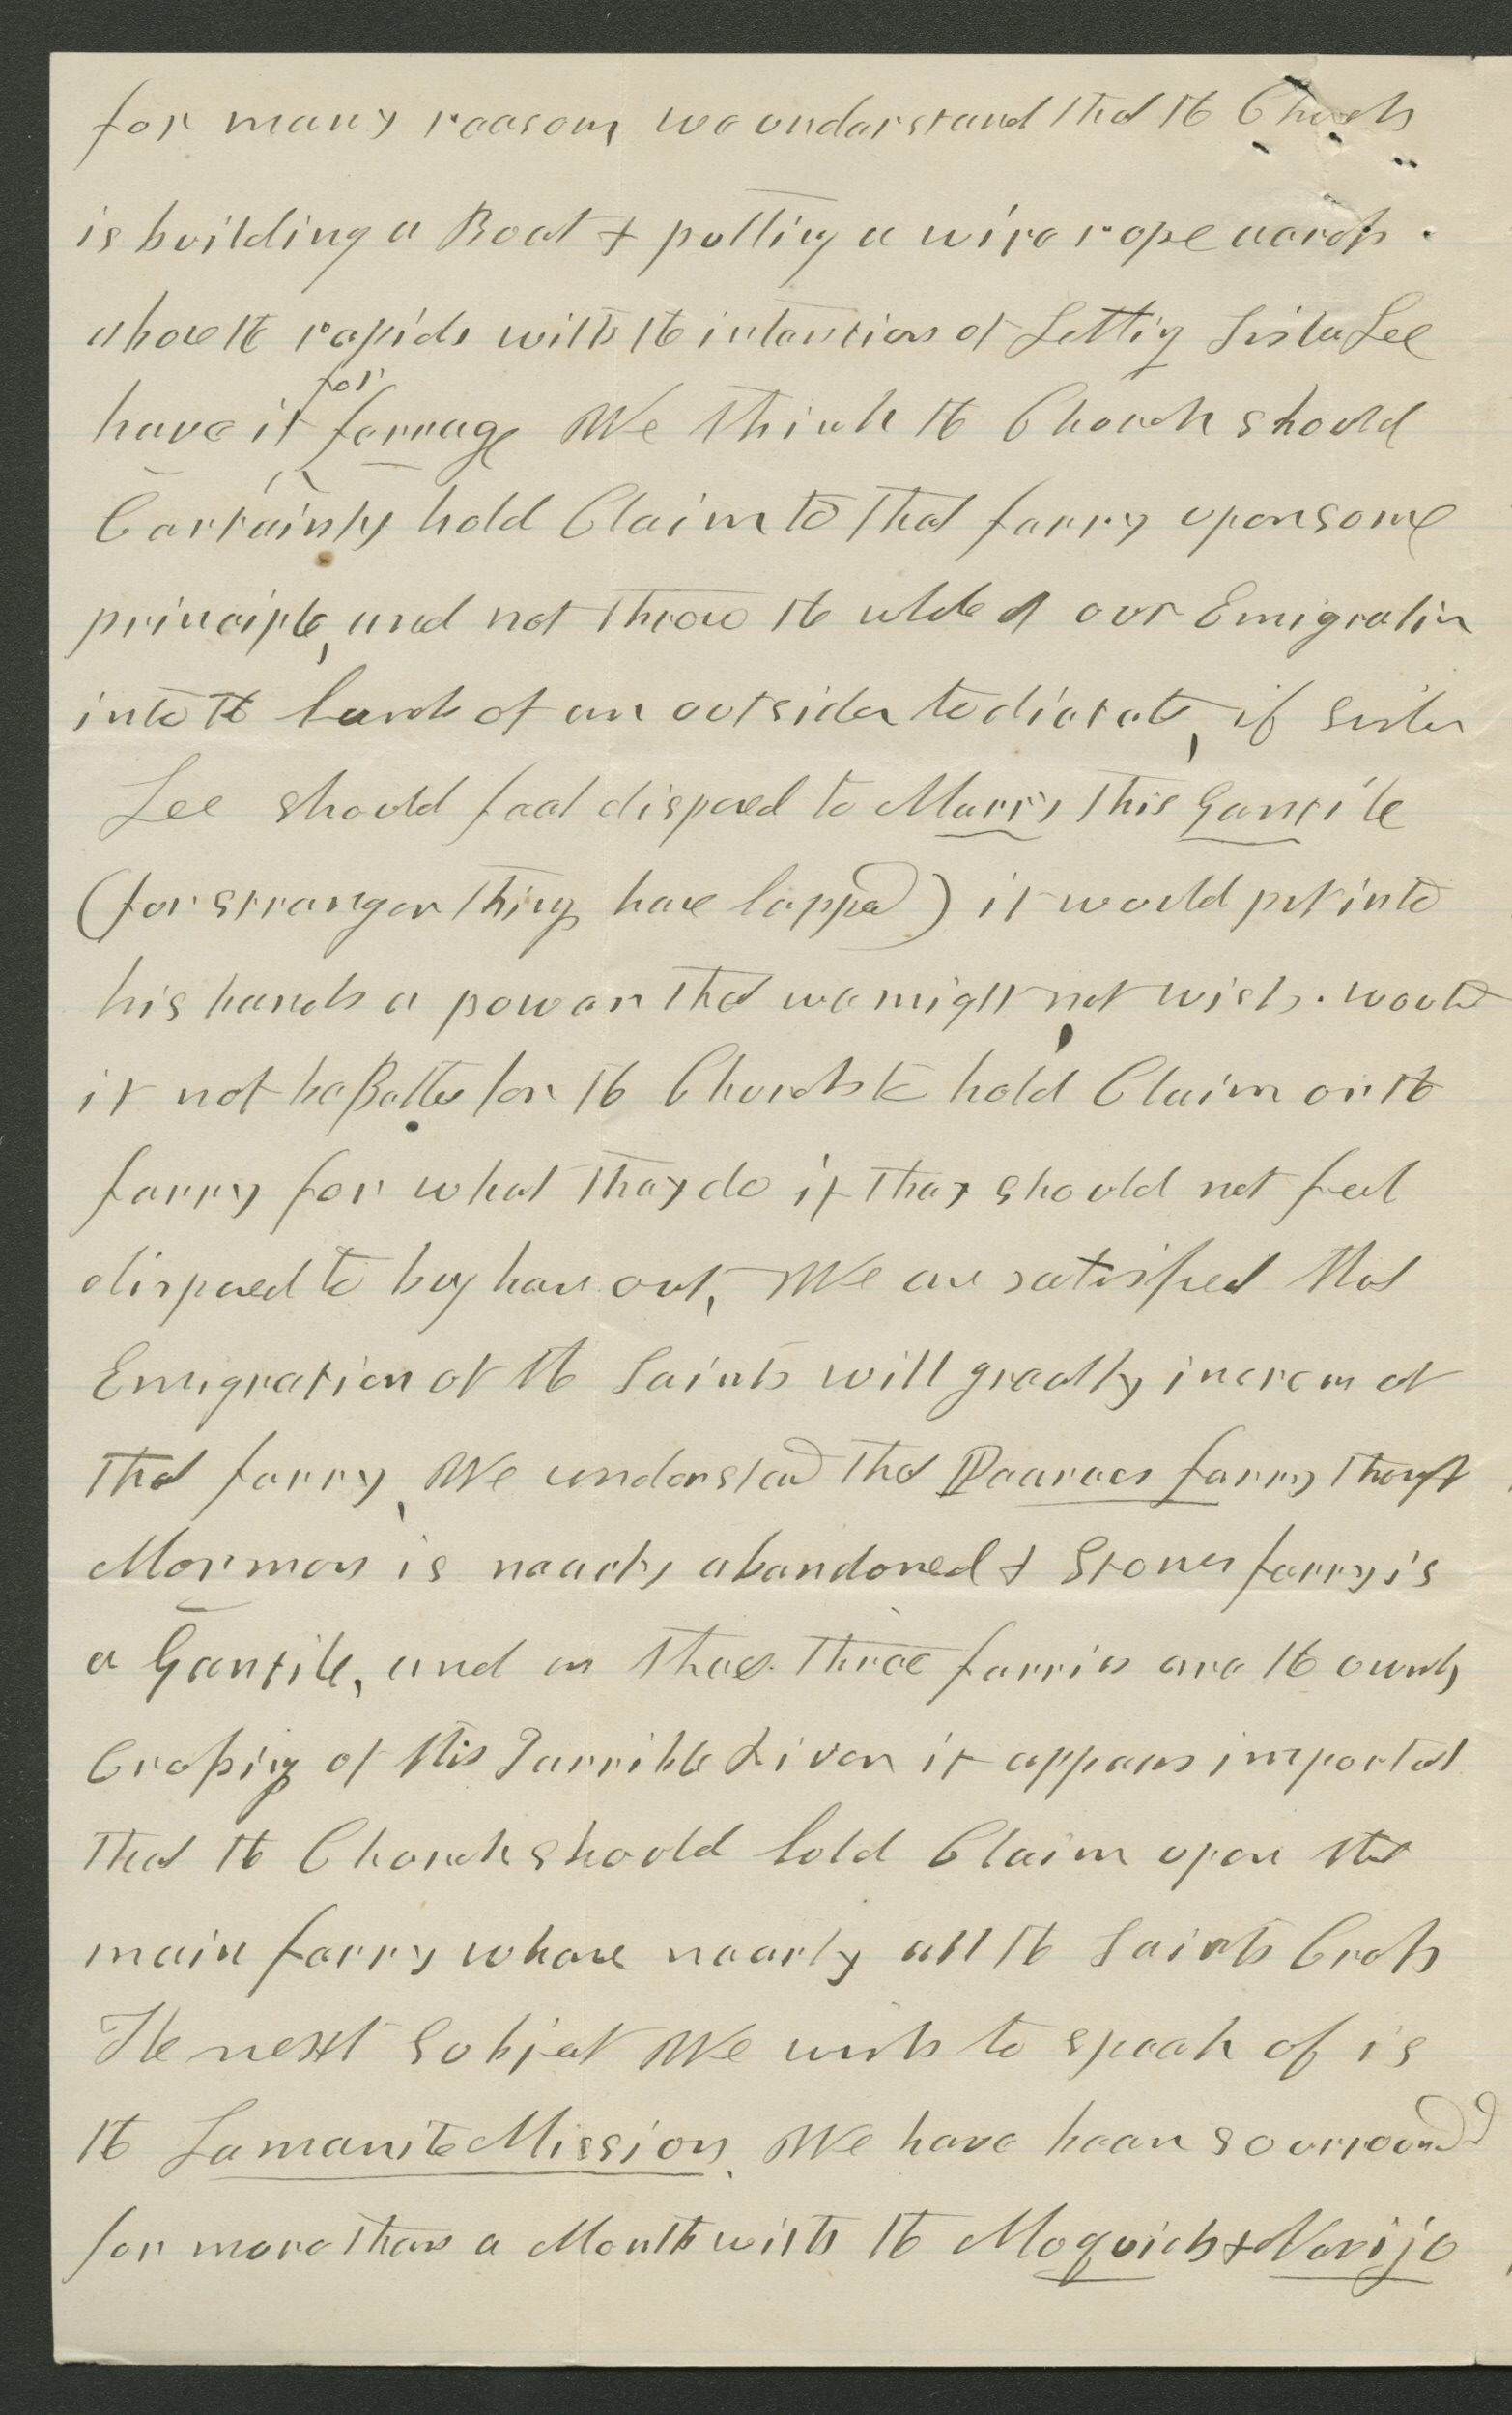 for many reasons we understand that the Church
is building a Boat & putting a wire rope across
above the rapids with the intention of Letting Sister Lee
have it for ferrage We think the Church should
Certainly hold Claim to that ferry upon some
principle, and not throw the whole of our Emigration
into the hands of an outsider to dictate, if Sister
Lee should feel disposed to Marry this Gentile
(for stranger things have happend) it would put into
his hands a power that we might not wish. would
it not be Better for the Church to hold Claim on the
ferry for what they do if they should not feel
disposed to buy her out, We are satisfied that
Emigration of the Saints will greatly increase at
that ferry, We understand that Pearces ferry though
Mormon is nearly abandoned & Stones ferry is
a Gentile, and as these three ferries are the ownly
Crossing of this Terrible River it appears important
that the Church should hold Claim upon the
main ferry whare nearly all the Saints Cross
The next Subject We wish to speak of is
the Lamanite Mission. We have been sourrounded
for more than a Month with the Moquich & Navijo